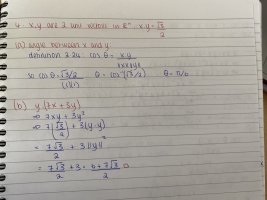 4. x,y are 2 unit vectors in ℝⁿ, x.y = √3/2
(a) angle between x and y.
definition 2.24: cos θ = x.y / ‖x‖‖y‖
so cos θ = √3/2 / (1)(1) θ = cos⁻¹(√3/2) θ = π/6
(b) y.(7x + 3y)
⇒ 7xy + 3y²
⇒ 7(√3/2) + 3(y.y)
= 7√3/2 + 3‖y‖²
= 7√3/2 + 3 = 6+7√3/2 □